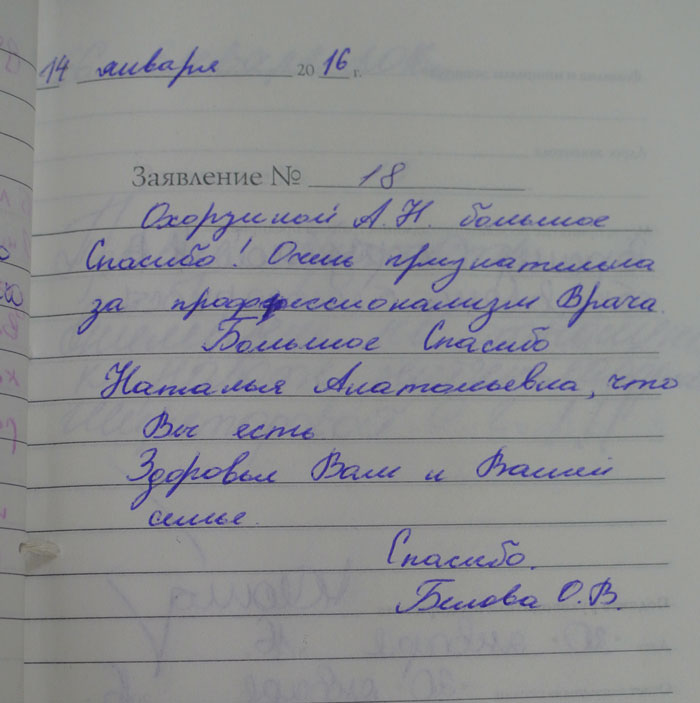 14 января 2016 г.
Заявление № 18
Охорзиной А.Н. большое
Спасибо! Очень признательна
за профессионализм Врача.
Большое Спасибо
Наталья Анатольевна, что
Вы есть
Здоровья Вам и Вашей
семье.
Спасибо.
Белова О.В.